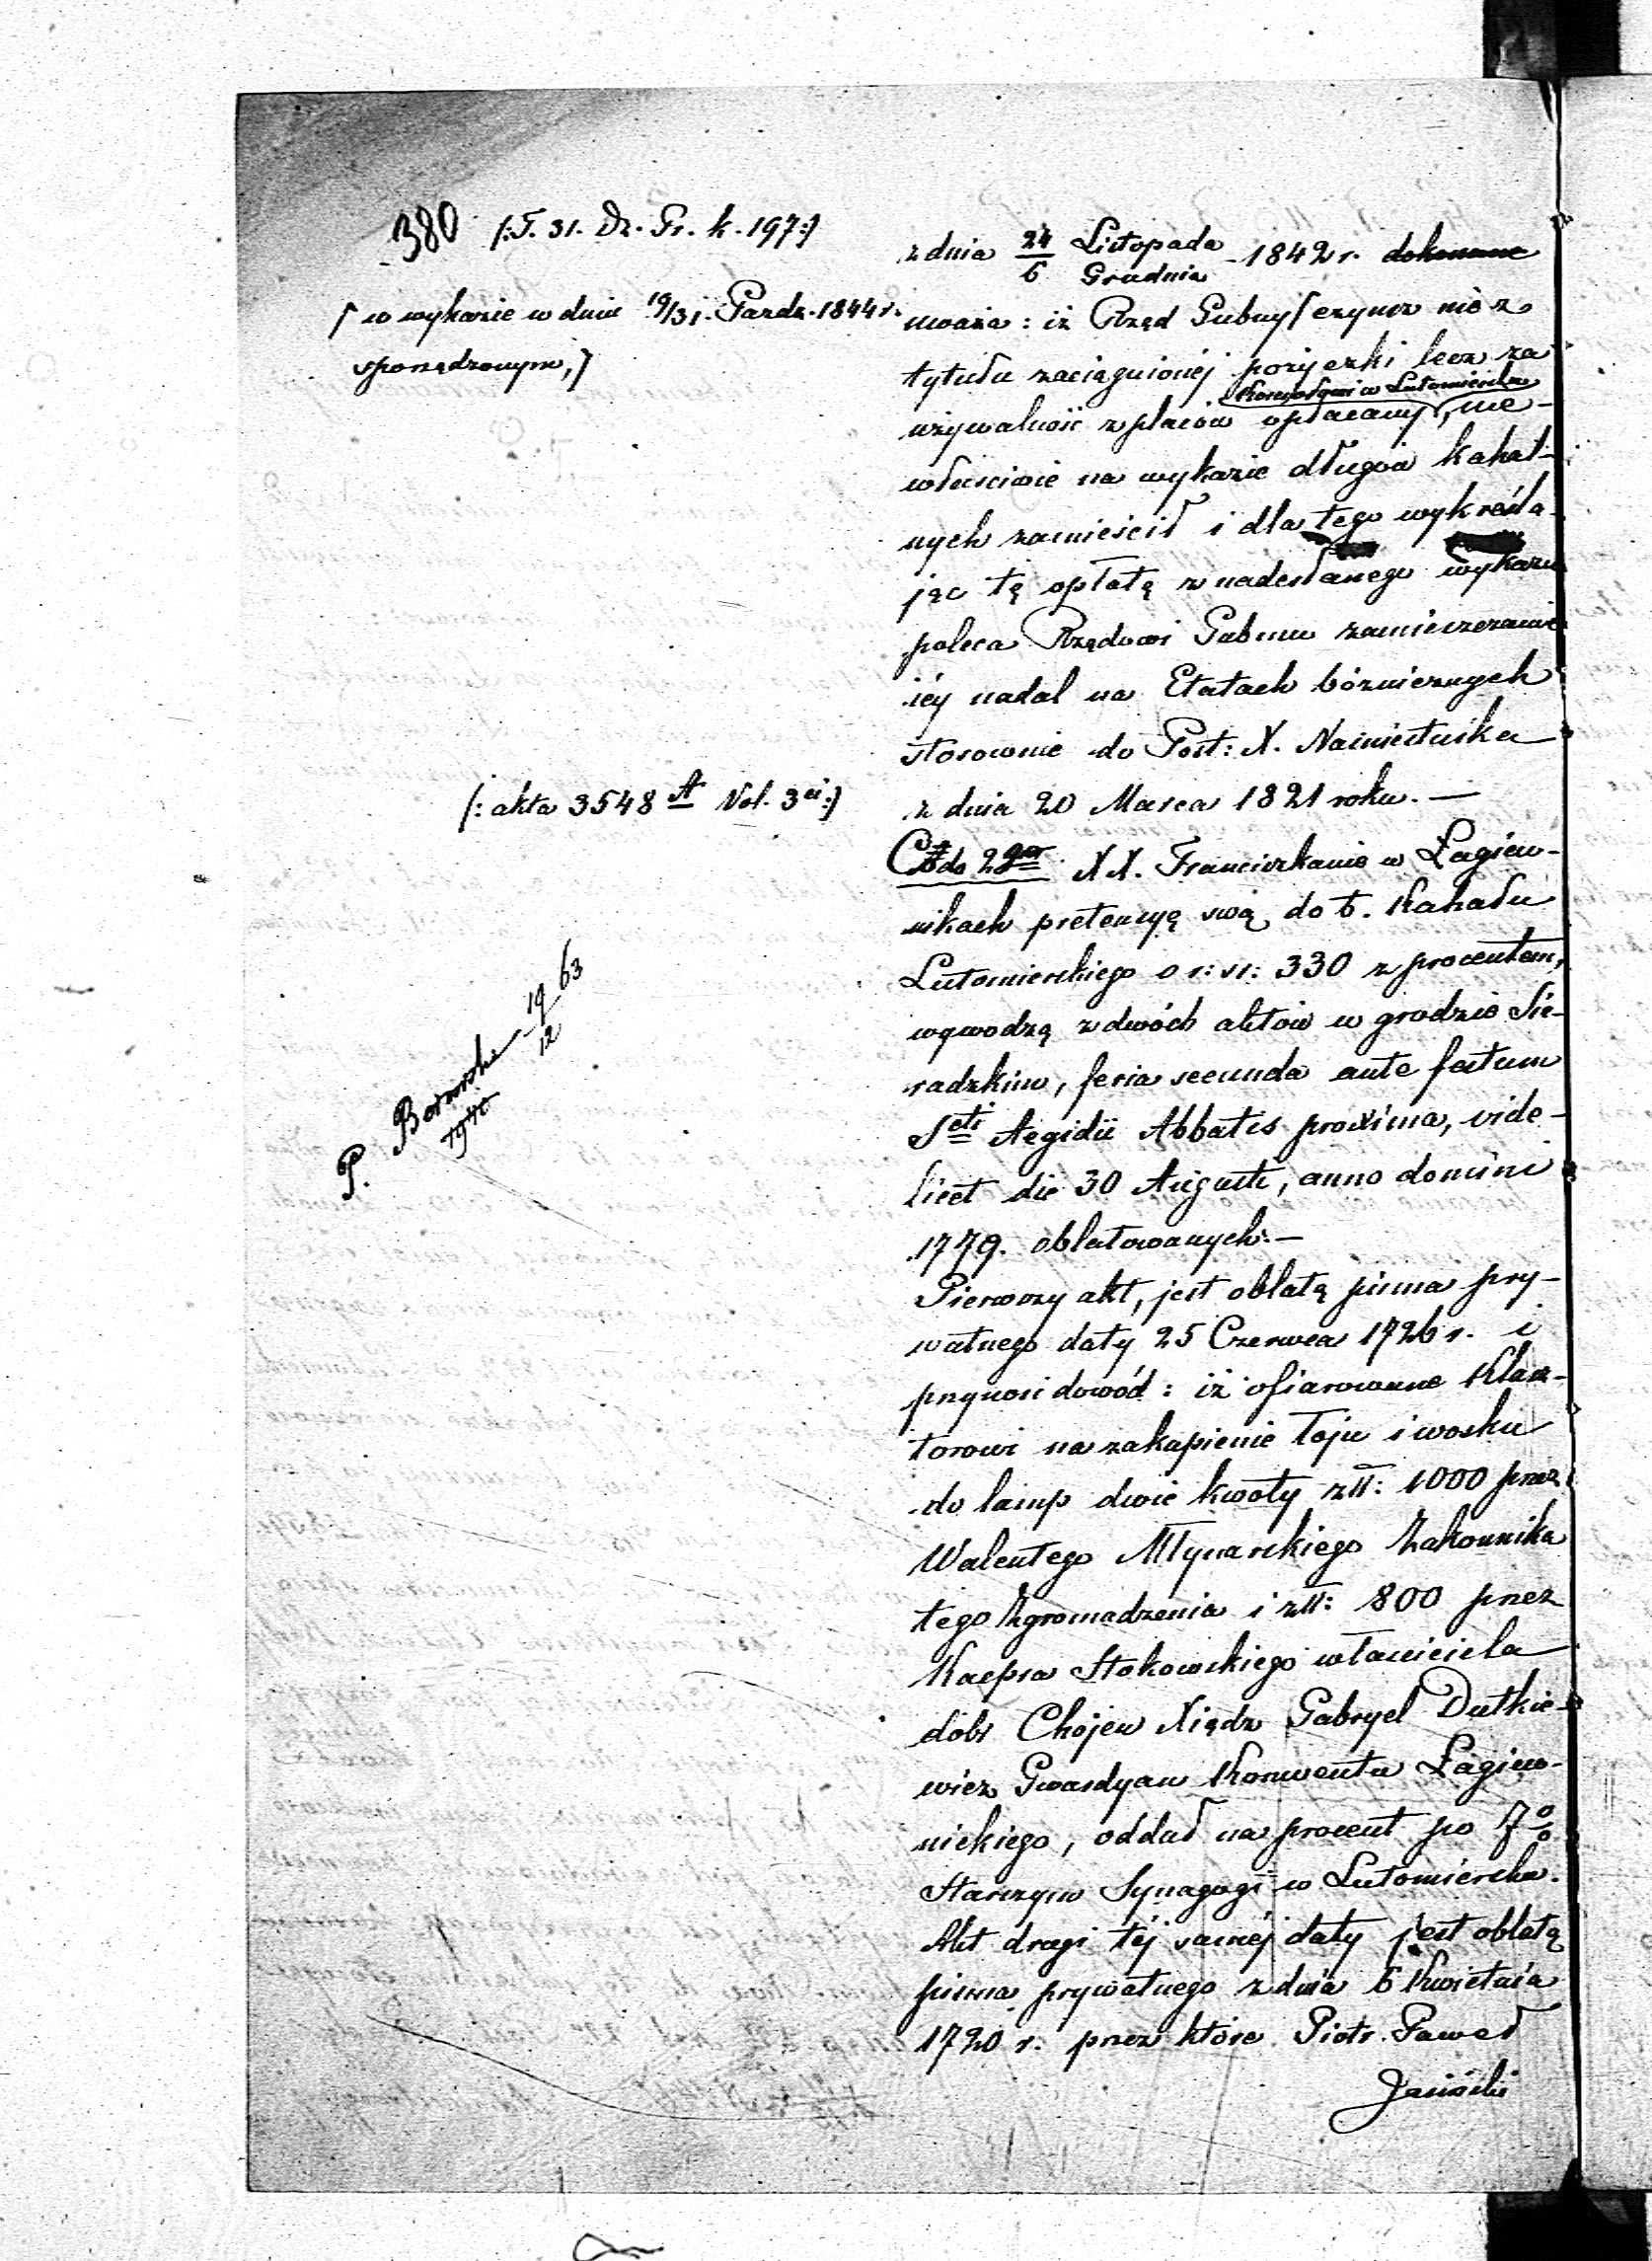 380 /:T. 31. Dz. Pr. k. 197:/
z dnia 24/6 Listopada/Grudnia 1842 r. dokonane
/ w wykazie w dniu 19/31. Pazdz. 1844 r.
sporządzonym, /
uważa: iż Rząd Gubny czynsz nie z
tytułu zaciągnionéj pożyczki lecz za
Konwentowi w Lutomiersku
używalność z placów opłacany, nie-
właściwie na wykazie długów kahal-
nych zamieścił i dla tego wykreśla-
jąc tę opłatę z nadesłanego wykazu
poleca Rządowi Gubmu zamieszczanie
iéy nadal na Etatach bóżniczych
stosownie do Post: X. Namiestnika
z dnia 20 Marca 1821 roku. —
/: akta 3548 A Vol. 3ci :/
C do 2go XX. Franciszkanie w Łagiew-
nikach pretensyę swą do b. Kahału
Lutomierskiego o r: sr: 330 z procentem,
wywodzą z dwóch aktów w grodzie Sie-
radzkim, feria secunda ante festum
Scti Aegidii Abbatis proxima, vide-
licet die 30 Augusti, anno domini
1779. oblatowanych. —
P. 19/12 63
Pierwszy akt, jest oblatą pisma pry-
watnego daty 25 Czerwca 1726 r. i
przynosi dowód: iż ofiarowane Klasz-
torowi na zakupienie łoju i wosku
do lamp dwie kwoty złł: 1000 przez
Walentego Młynarskiego Zakonnika
tego Zgromadzenia i złł: 800 przez
Kacpra Stokowskiego właściciela
dóbr Chojen Xiądz Gabryel Dutkie-
wicz Gwardyan Konwentu Łagiew-
nickiego, oddał na procent po 7 %
Starszym Synagogi w Lutomiersku.
Akt drugi téj saméj daty jest oblatą
pisma prywatnego z dnia 6 Kwietnia
1720 r. przez które Piotr Paweł
Jasiński